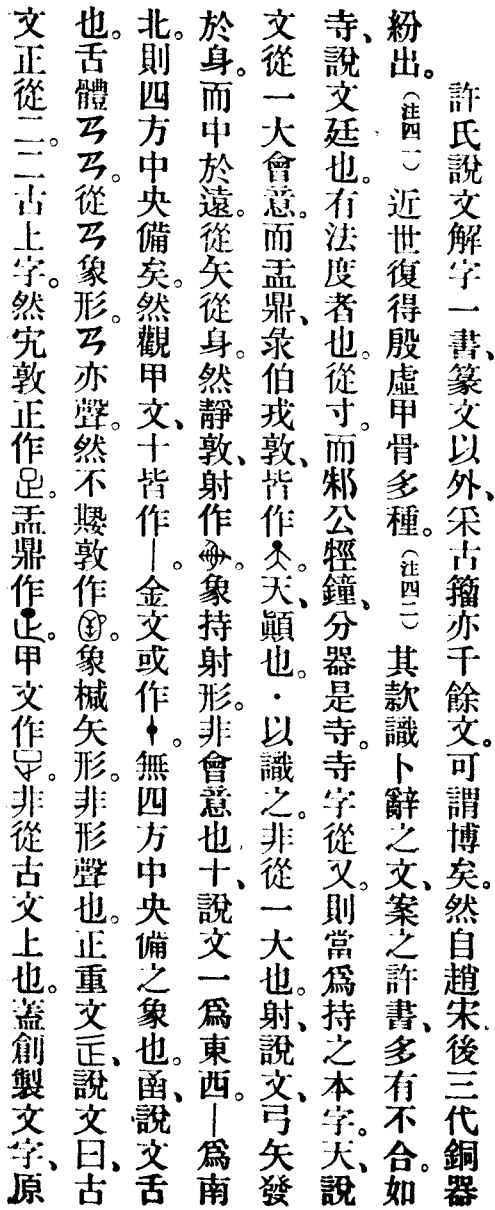 許氏說文解字一書、篆文以外、采古籀亦千餘文。可謂博矣。然自趙宋後三代銅器
紛出。（注四一）近世復得殷虛甲骨多種。（注四二）其款識卜辭之文、案之許書、多有不合。如
寺、說文廷也。有法度者也。從寸。而邾公牼鐘、分器是寺。寺字從又。則當爲持之本字。天、說
文從一大會意。而盂鼎、彔伯戎敦、皆作。天、顚也。・以識之。非從一大也。射、說文、弓矢發
於身。而中於遠。從矢從身。然靜敦、射作。象持射形。非會意也。十、說文一爲東西。丨爲南
北。則四方中央備矣。然觀甲文、十皆作丨。金文或作。無四方中央備之象也。圅、說文舌
也。舌體ㄢㄢ。從ㄢ象形。ㄢ亦聲。然不𡢁敦作。象椷矢形。非形聲也。正重文𤴓、說文曰、古
文正從二。二古上字。然宄敦正作。盂鼎作。甲文作。非從古文上也。蓋創製文字、原